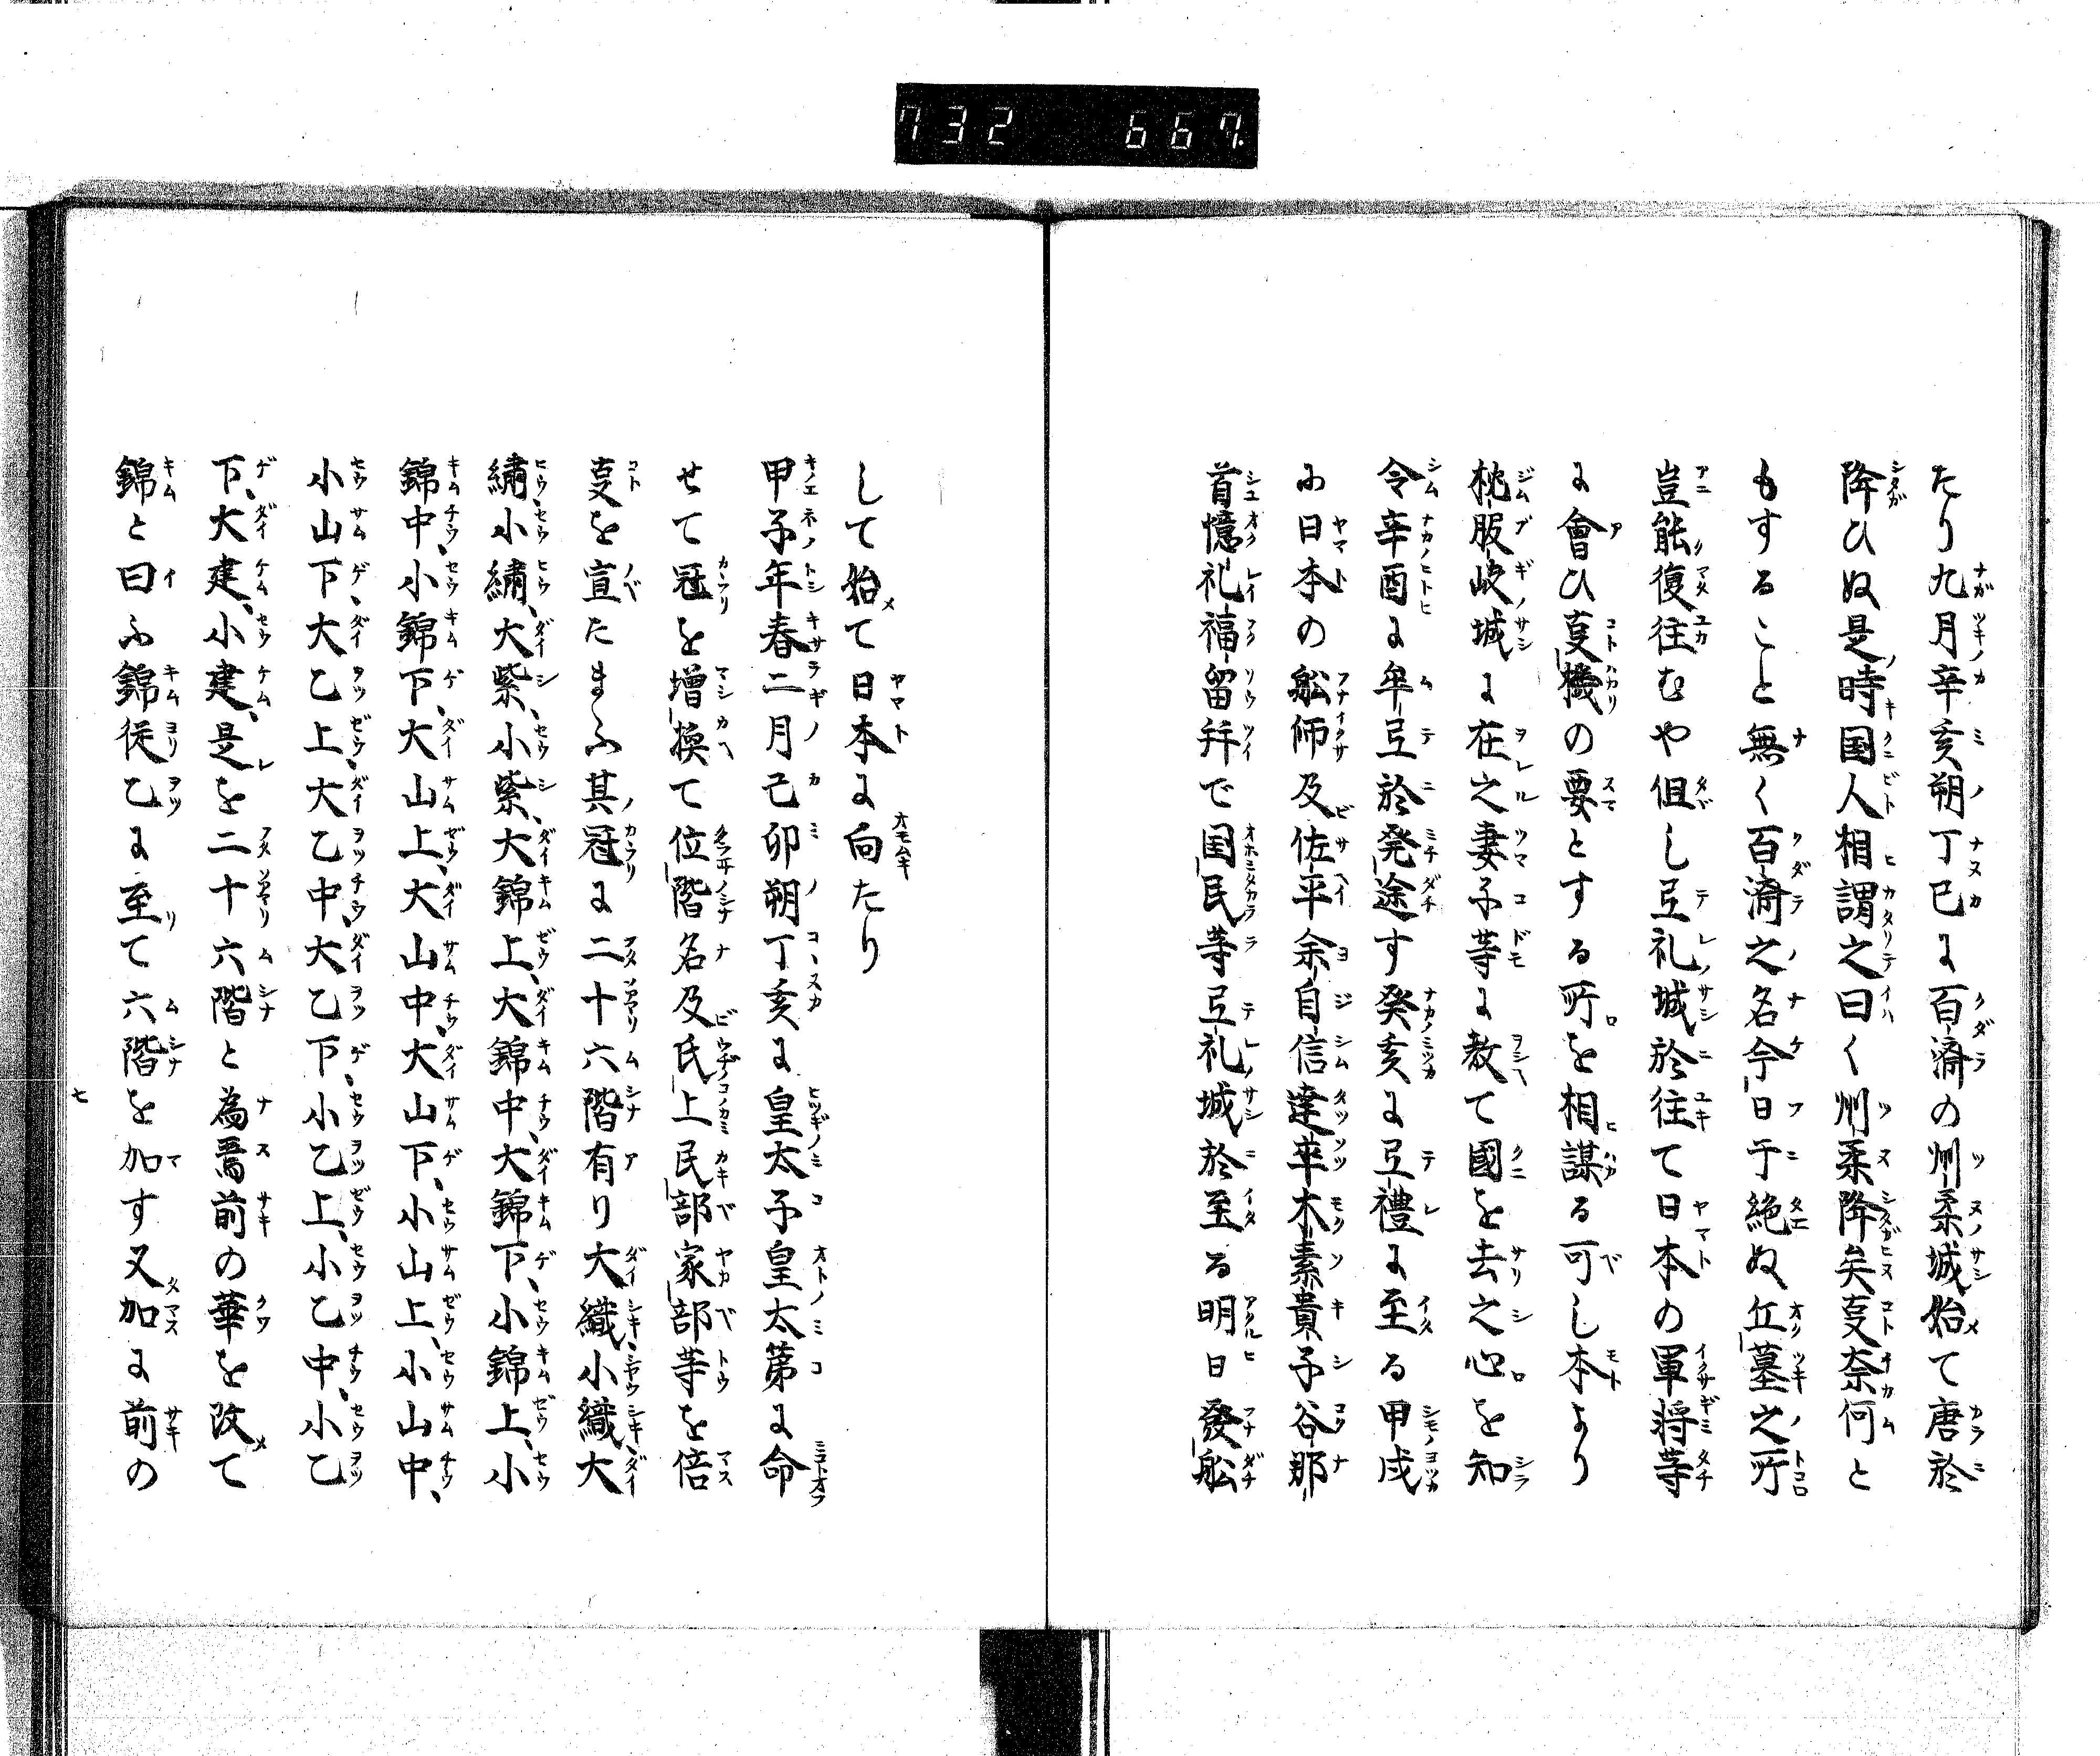 732 667.
たり九月辛亥朔丁巳に百濟の州柔城始て唐於
降ひぬ是時国人相謂之曰く州柔降矣㕝奈何と
もすること無く百濟之名今日于絶ぬ丘墓之所
豈能復往むや但し弖礼城於往て日本の軍将等
に會ひ㕝機の要とする所を相謀る可し本より
枕服岐城に在之妻子等に教て國を去之心を知
令辛酉に牟弖於発途す癸亥に弖禮に至る甲戌
に日本の舩師及佐平余自信達率木素貴子谷那
首憶礼福留幷で国民等弖礼城於至る明日發舩
して始て日本に向たり
甲子年春二月己卯朔丁亥に皇太子皇太第に命
せて冠を增換て位階名及氏上民部家部等を倍
㕝を宣たまふ其冠に二十六階有り大織、小織、大
繡、小繡、大紫、小紫、大錦上、大錦中、大錦下、小錦上、小
錦中、小錦下、大山上、大山中、大山下、小山上、小山中、
小山下、大乙上、大乙中、大乙下、小乙上、小乙中、小乙
下、大建、小建、是を二十六階と為焉前の華を改て
錦と曰ふ錦従乙に至て六階を加す又加に前の
七